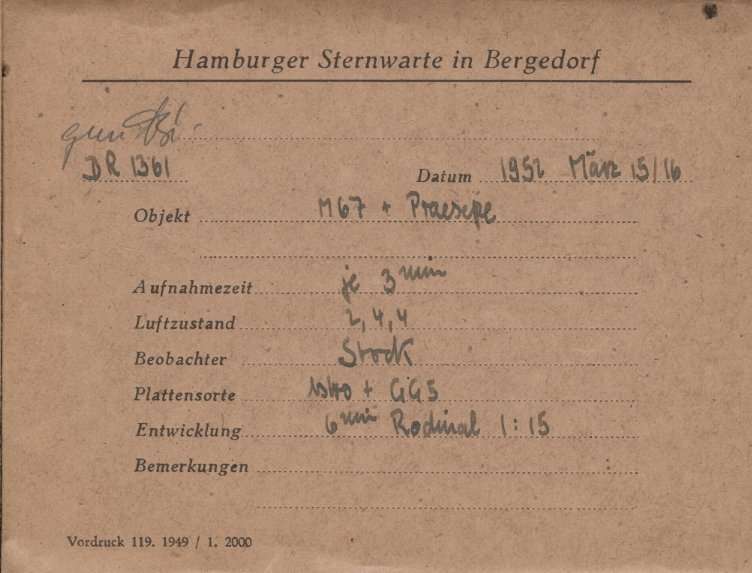 Hamburger Sternwarte in Bergedorf
DR 1361 Datum 1952 März 15/16
Objekt M67 + Praesepe
Aufnahmezeit je 3 min
Luftzustand 2,4,4
Beobachter Stock
Plattensorte Astro + GG5
Entwicklung 6 min Rodinal 1:15
Bemerkungen
Vordruck 119. 1949 / 1. 2000